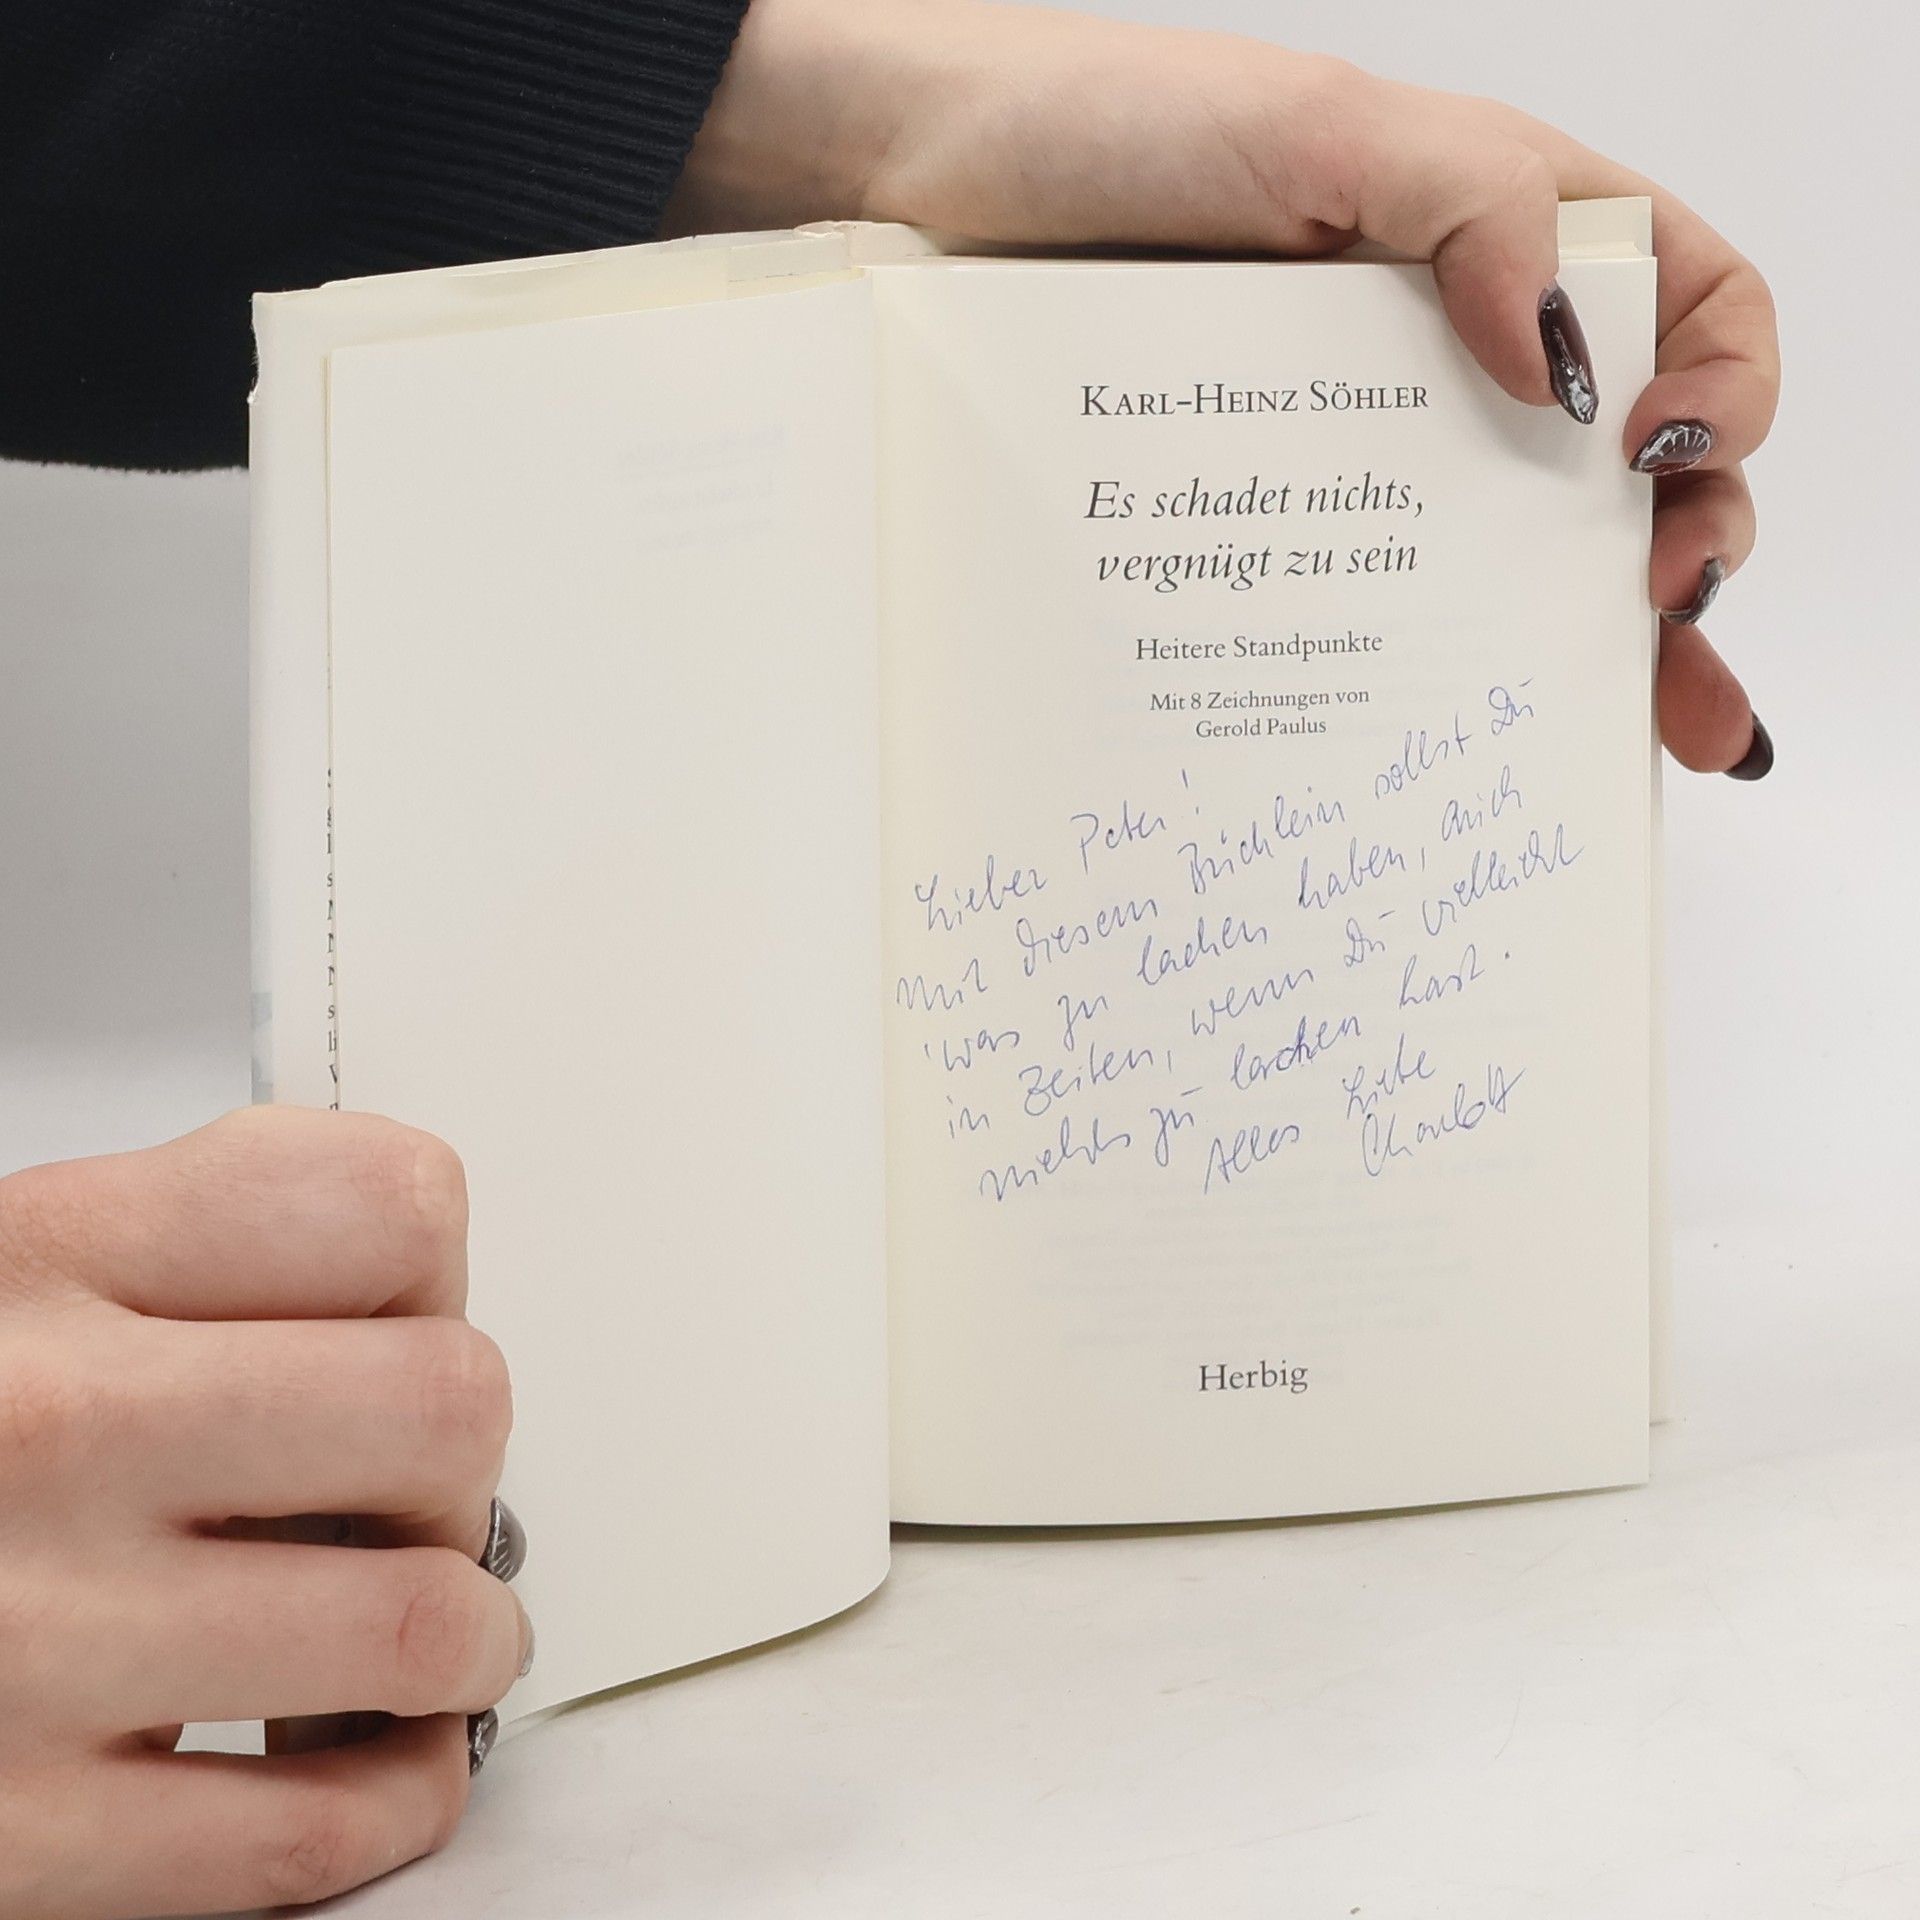 KARL-HEINZ SÖHLER
Es schadet nichts,
vergnügt zu sein
Heitere Standpunkte
Mit 8 Zeichnungen von
Gerold Paulus
Lieber Peter!
Mit diesem Büchlein sollst Du
was zu lachen haben, auch
in Zeiten, wenn Du vielleicht
nichts zu lachen hast.
Alles Liebe
Charlott
Herbig